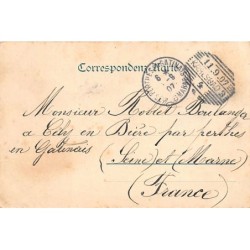 Correspondenz-Karte
11.9.07
Monsieur Robert Boulanger
a Cily en Bière par perthes
en Gatinais
(Seine) et (Marne)
(France)